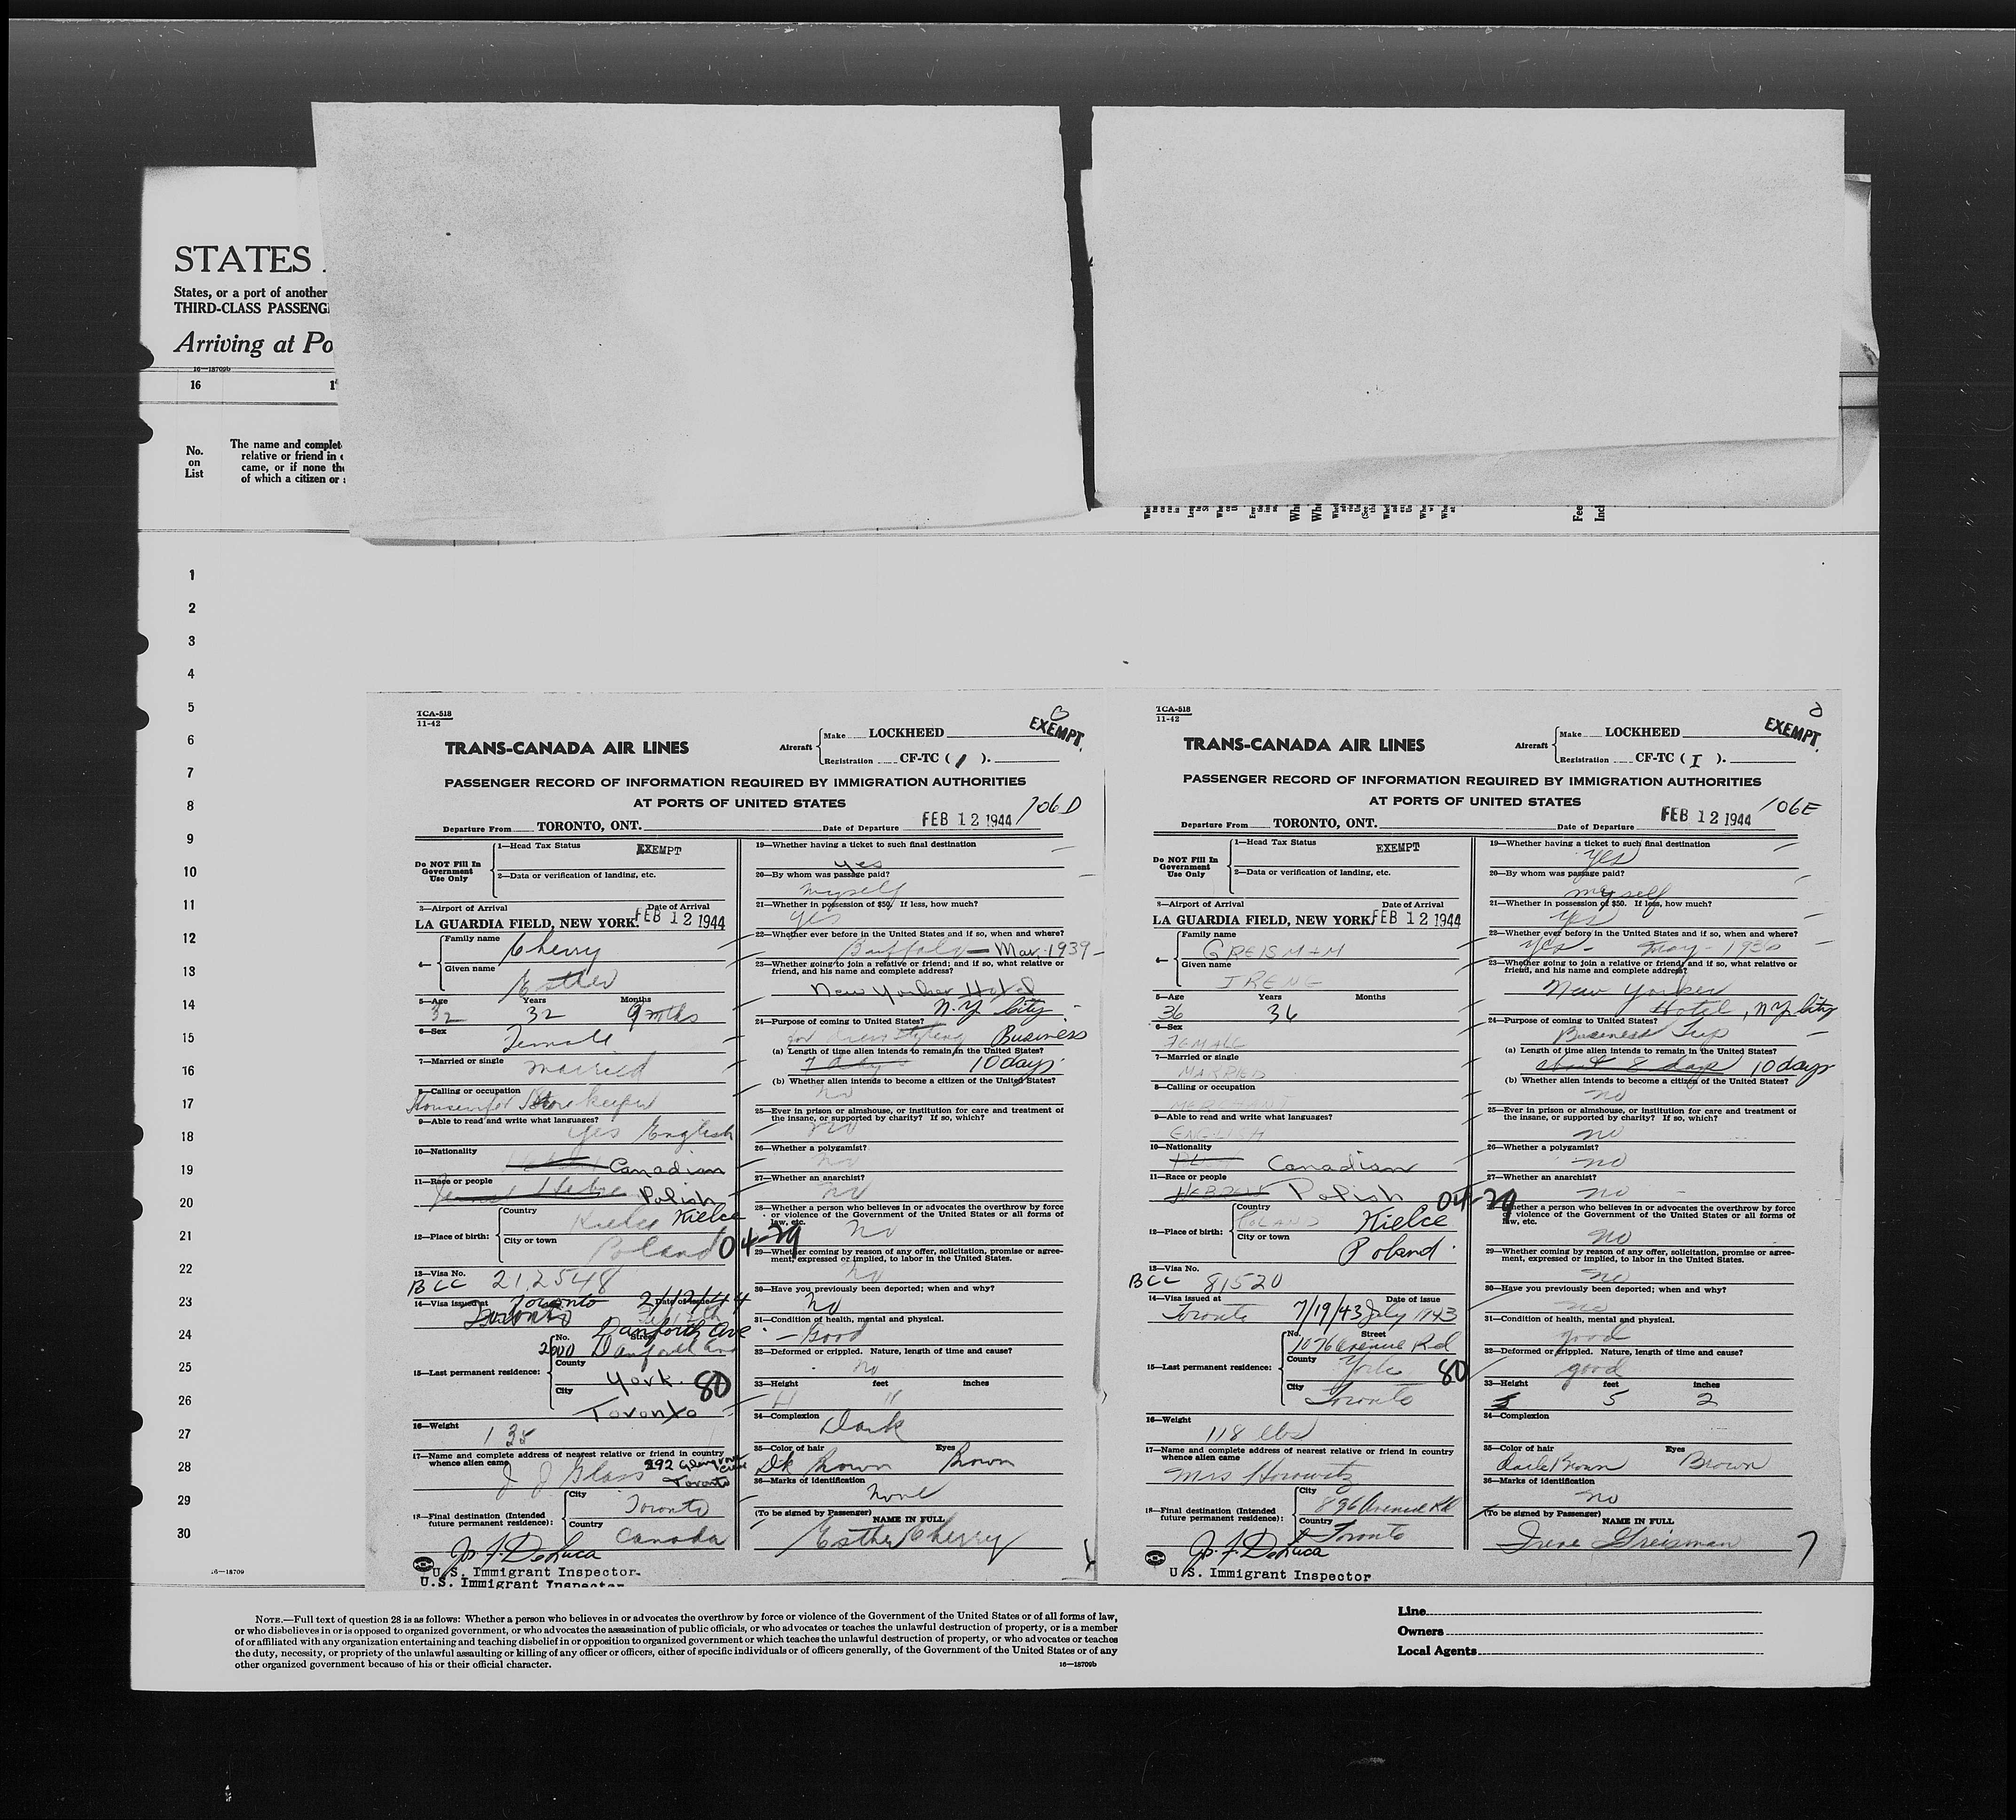 STATES
States, or a port of another
THIRD-CLASS PASSENG
Arriving at Po
16—18709b
16
No.
on
List
The name and complet
relative or friend in
came, or if none the
of which a citizen or
1
2
3
4
5
6
7
8
9
10
11
12
13
14
15
16
17
18
19
20
21
22
23
24
25
26
27
28
29
30
16—18709
TCA-518
11-42
EXEMPT
TRANS-CANADA AIR LINES
Aircraft
Make LOCKHEED
Registration CF-TC ( 1 ).
PASSENGER RECORD OF INFORMATION REQUIRED BY IMMIGRATION AUTHORITIES
AT PORTS OF UNITED STATES
106D
Departure From TORONTO, ONT. Date of Departure FEB 12 1944
Do NOT Fill In
Government
Use Only
1—Head Tax Status EXEMPT
2—Data or verification of landing, etc.
3—Airport of Arrival Date of Arrival
LA GUARDIA FIELD, NEW YORK. FEB 12 1944
4— Family name Cherry
Given name Esther
5—Age Years Months
32 32 9 mths
6—Sex Female
7—Married or single married
8—Calling or occupation
Housewife Storekeeper
9—Able to read and write what languages?
yes English
10—Nationality Canadian
11—Race or people Polish
12—Place of birth:
Country Kielce Kielce
City or town Poland 04-29
13—Visa No.
BCC 212548
14—Visa issued at Toronto Date of issue 2/12/44
Toronto
15—Last permanent residence:
No. Street Danforth Ave
2600 Danforth Ave
County York. 80
City Toronto
16—Weight 135
17—Name and complete address of nearest relative or friend in country
whence alien came
J J Glass 292 Toronto
18—Final destination (Intended
future permanent residence):
City Toronto
Country Canada
Jos. F. DeLuca
U.S. Immigrant Inspector.
U.S. Immigrant Inspector
19—Whether having a ticket to such final destination
yes
20—By whom was passage paid?
myself
21—Whether in possession of $50. If less, how much?
yes
22—Whether ever before in the United States and if so, when and where?
Buffalo — Mar. 1939
23—Whether going to join a relative or friend; and if so, what relative or
friend, and his name and complete address?
New Yorker Hotel
N.Y. City
24—Purpose of coming to United States?
Business
(a) Length of time alien intends to remain in the United States?
7 days 10 days
(b) Whether alien intends to become a citizen of the United States?
no
25—Ever in prison or almshouse, or institution for care and treatment of
the insane, or supported by charity? If so, which?
no
26—Whether a polygamist?
no
27—Whether an anarchist?
no
28—Whether a person who believes in or advocates the overthrow by force
or violence of the Government of the United States or all forms of
law, etc.
no
29—Whether coming by reason of any offer, solicitation, promise or agree-
ment, expressed or implied, to labor in the United States.
no
30—Have you previously been deported; when and why?
no
31—Condition of health, mental and physical.
Good
32—Deformed or crippled. Nature, length of time and cause?
no
33—Height feet inches
34—Complexion Dark
35—Color of hair Eyes
Dk Brown Brown
36—Marks of identification
None
(To be signed by Passenger)
NAME IN FULL
Esther Cherry
TCA-518
11-42
EXEMPT
TRANS-CANADA AIR LINES
Aircraft
Make LOCKHEED
Registration CF-TC ( I ).
PASSENGER RECORD OF INFORMATION REQUIRED BY IMMIGRATION AUTHORITIES
AT PORTS OF UNITED STATES
106E
Departure From TORONTO, ONT. Date of Departure FEB 12 1944
Do NOT Fill In
Government
Use Only
1—Head Tax Status EXEMPT
2—Data or verification of landing, etc.
3—Airport of Arrival Date of Arrival
LA GUARDIA FIELD, NEW YORK FEB 12 1944
4— Family name GREISMAN
Given name IRENE
5—Age Years Months
36 36
6—Sex
FEMALE
7—Married or single
MARRIED
8—Calling or occupation
MERCHANT
9—Able to read and write what languages?
ENGLISH
10—Nationality Canadian
11—Race or people
HEBREW Polish 04-29
12—Place of birth:
Country POLAND Kielce
City or town Poland
13—Visa No.
BCC 81520
14—Visa issued at Date of issue
Toronto 7/19/43 July 1943
15—Last permanent residence:
No. Street
1076 Avenue Rd
County York 80
City Toronto
16—Weight
118 lbs
17—Name and complete address of nearest relative or friend in country
whence alien came
Mrs Horowitz
18—Final destination (Intended
future permanent residence):
City 896 Avenue Rd
Country Toronto
Jos. F. DeLuca
U.S. Immigrant Inspector
19—Whether having a ticket to such final destination
yes
20—By whom was passage paid?
myself
21—Whether in possession of $50. If less, how much?
yes
22—Whether ever before in the United States and if so, when and where?
yes -
23—Whether going to join a relative or friend; and if so, what relative or
friend, and his name and complete address?
New Yorker
Hotel, N.Y. City
24—Purpose of coming to United States?
Business Trip
(a) Length of time alien intends to remain in the United States?
about 8 days 10 days
(b) Whether alien intends to become a citizen of the United States?
no
25—Ever in prison or almshouse, or institution for care and treatment of
the insane, or supported by charity? If so, which?
no
26—Whether a polygamist?
no
27—Whether an anarchist?
no
Whether a person who believes in or advocates the overthrow by force
or violence of the Government of the United States or all forms of
law, etc.
no
29—Whether coming by reason of any offer, solicitation, promise or agree-
ment, expressed or implied, to labor in the United States.
no
30—Have you previously been deported; when and why?
no
31—Condition of health, mental and physical.
good
32—Deformed or crippled. Nature, length of time and cause?
good
33—Height feet inches
5 2
34—Complexion
35—Color of hair Eyes
dark Brown Brown
36—Marks of identification
no
(To be signed by Passenger)
NAME IN FULL
Irene Greisman
7
NOTE.—Full text of question 28 is as follows: Whether a person who believes in or advocates the overthrow by force or violence of the Government of the United States or of all forms of law,
or who disbelieves in or is opposed to organized government, or who advocates the assassination of public officials, or who advocates or teaches the unlawful destruction of property, or is a member
of or affiliated with any organization entertaining and teaching disbelief in or opposition to organized government or which teaches the unlawful destruction of property, or who advocates or teaches
the duty, necessity, or propriety of the unlawful assaulting or killing of any officer or officers, either of specific individuals or of officers generally, of the Government of the United States or of any
other organized government because of his or their official character.
16—18709b
Line
Owners
Local Agents